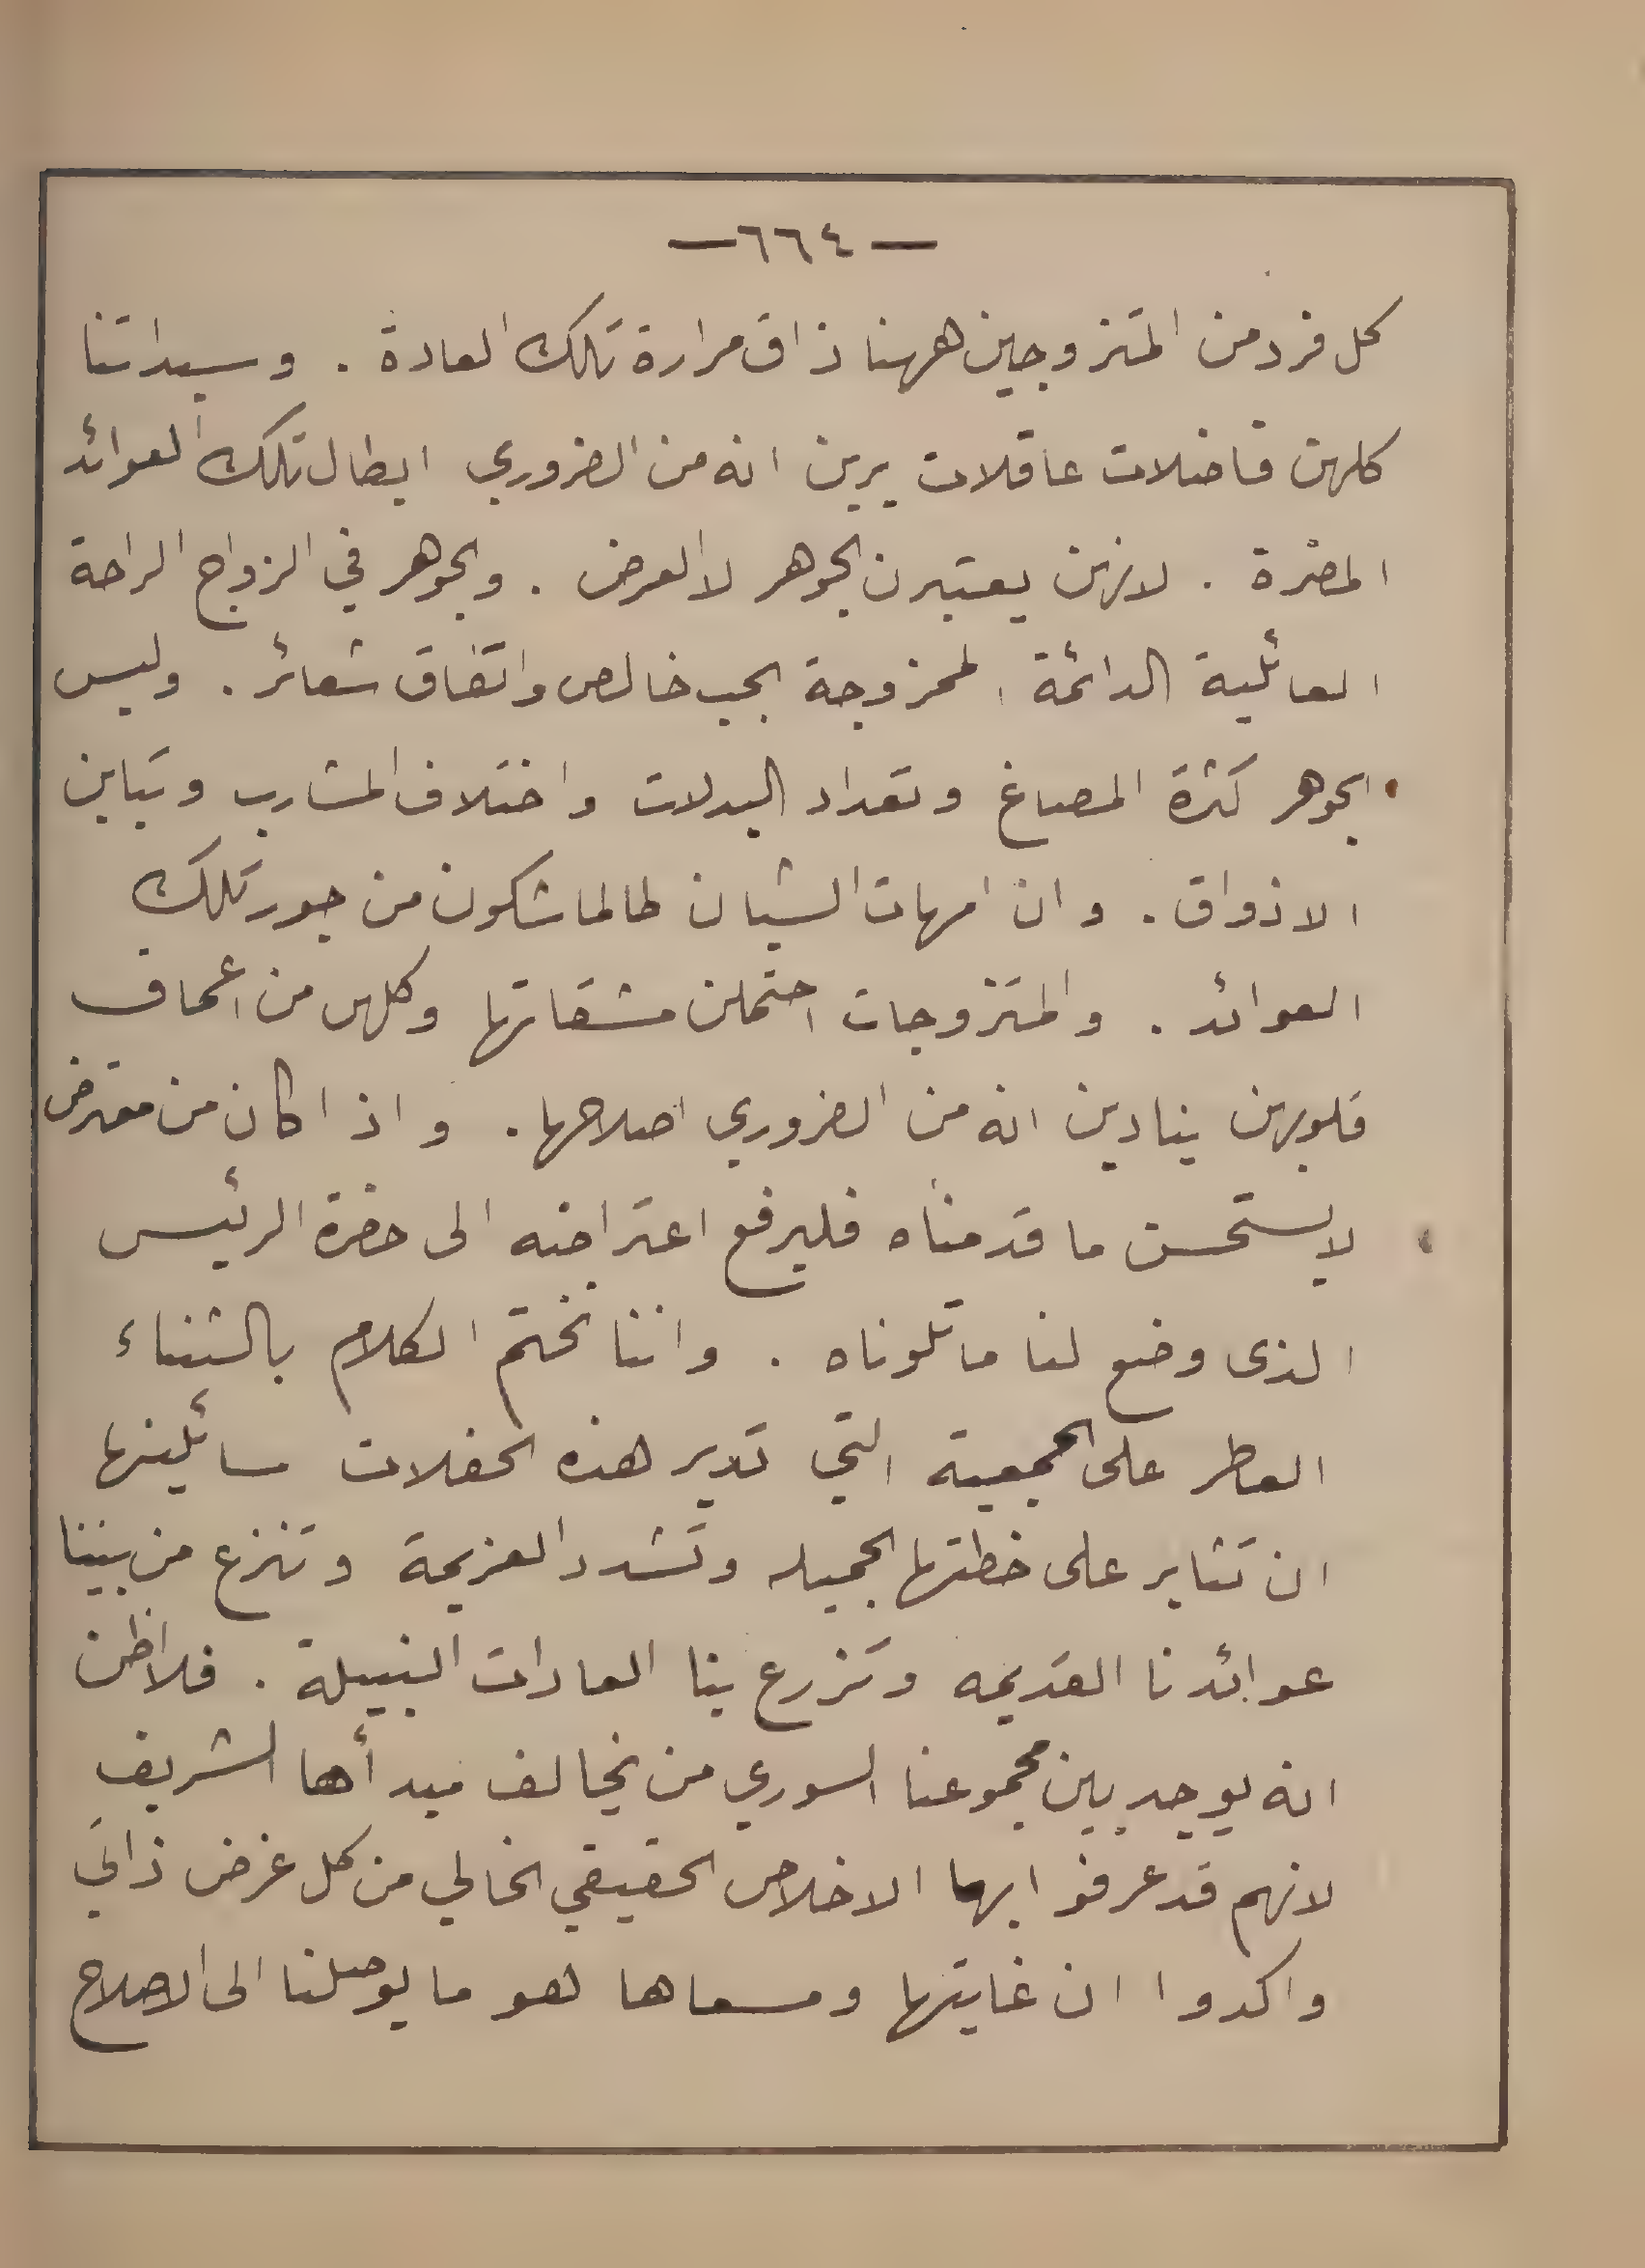 — ٦٦٤ —
كل فرد من المتزوجين ههنا ذاق مرارة تلك العادة . وسيداتنا
كلهن فاضلات عاقلات يرين انه من الضروري ابطال تلك العوائد
المضرة . لانهن يعتبرن الجوهر لا العرض . والجوهر في الزواج الراحة
العائلية الدائمة الممزوجة بحب خالص واتفاق شعائر . وليس
الجوهر كثرة المصاغ وتعداد البدلات واختلاف المشارب وتباين
الاذواق . وان امهات الشبان طالما شكون من جور تلك
العوائد . والمتزوجات احتملن مشقاتها وكلهن من اعماق
قلوبهن ينادين انه من الضروري اصلاحها . واذا كان من معترض
لا يستحسن ما قدمناه فليرفع اعتراضه الى حضرة الرئيس
الذى وضع لنا ما تلوناه . واننا نختم الكلام بالثناء
العطر على الجمعية التي تدير هذه الحفلات سائلينها
ان تثابر على خطتها الجميله وتشدد العزيمة وتنزع من بيننا
عوائدنا القديمه وتزرع بنا العادات النبيلة . فلا اظن
انه يوجد بين مجموعنا السوري من يخالف مبدأها الشريف
لانهم قد عرفوا بها الاخلاص الحقيقي الخالي من كل غرض ذاتي
واكدوا ان غايتها ومسعاها لهو ما يوصلنا الى الاصلاح